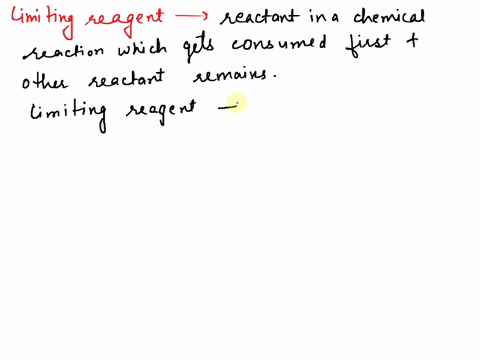 Limiting reagent → reactant in a chemical
reaction which gets consumed first +
other reactant remains.
Limiting reagent –